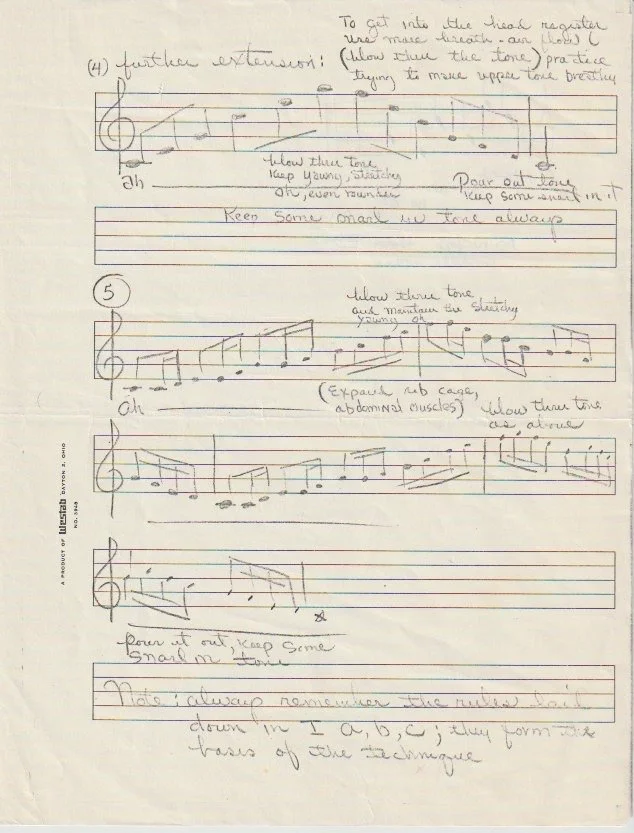 To get into the head register
use more breath - air flow (
(4) further extension: (blow thru the tone) practice
trying to make upper tone breathy
blow thru tone
Keep young, stretchy
Ah
oh, even rounder
Pour out tone
keep some snarl in it
Keep some snarl in tone always
5
blow thru tone
and maintain the stretchy
young oh
ah
(Expand rib cage,
abdominal muscles)
blow thru tone
as above
A PRODUCT OF Westab DAYTON 2, OHIO
NO.
pour it out, keep some
snarl in tone
Note: always remember the rules laid
down in I a, b, c; they form the
basis of the technique